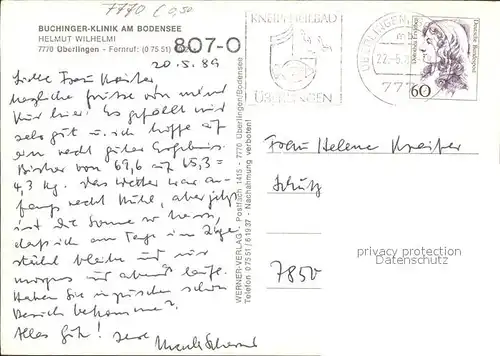 7770 C 0,50
BUCHINGER-KLINIK AM BODENSEE
HELMUT WILHELMI
7770 Überlingen - Fernruf: (0 75 51)
807-0
20.5.89
Liebe Frau
herzliche Grüsse von meiner
Kur hier! Es gefällt mir
sehr gut u. ich hoffe auf
ein recht gutes Ergebnis.
Bisher von 69,6 auf 65,3 =
4,3 kg. Das Wetter war an-
fangs recht kühl, aber jetzt
ist die Sonne so heiss,
dass ich am Tage im Liege-
stuhl bleibe und nur
morgens und abends laufe.
Haben Sie inzwischen schon
Besuch bekommen?
Alles Gute! Ihre
WERNER-VERLAG - Postfach 1415 - 7770 Überlingen/Bodensee
Telefon 0 75 51 / 6 19 37 - Nachahmung verboten!
KNEIPPHEILBAD
ÜBERLINGEN
ÜBERLINGEN
22.-5.
777
Deutsche Bundespost
60
Frau Helene
7850
privacy protection
Datenschutz